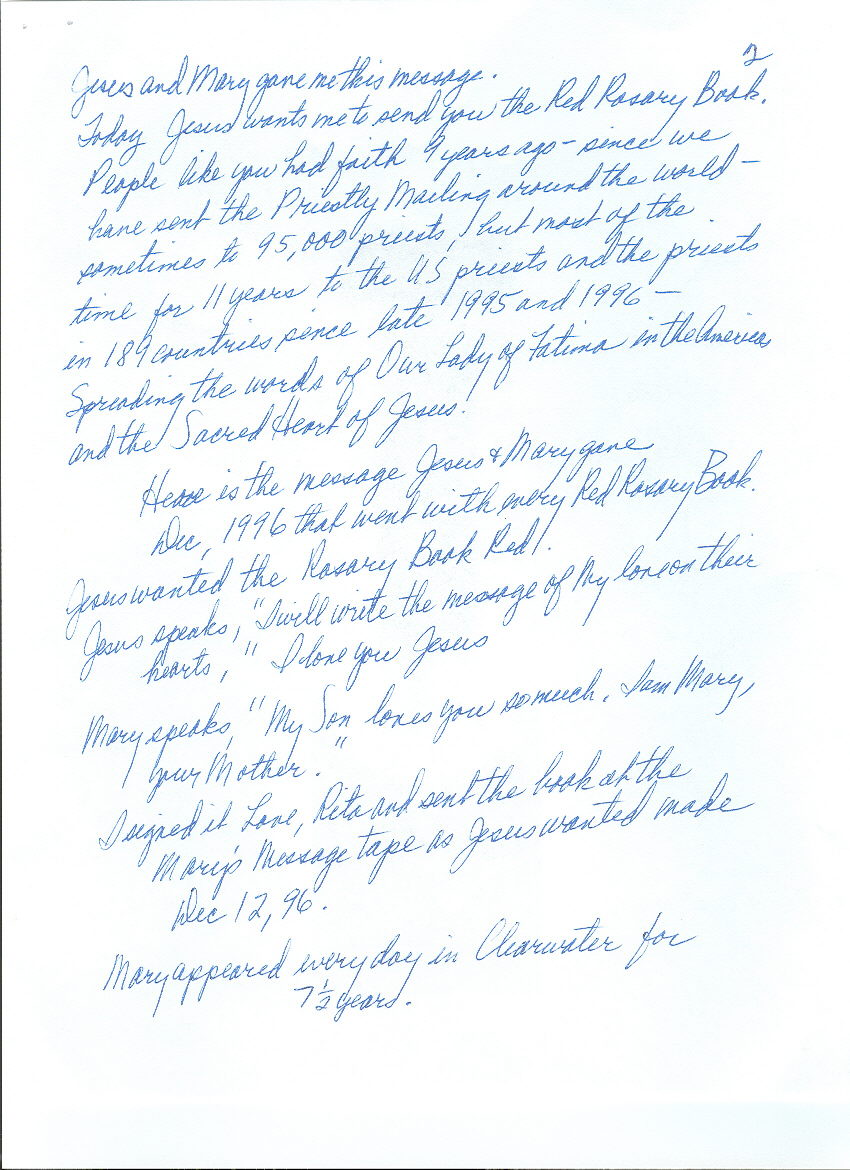 2
Jesus and Mary gave me this message.
Today Jesus wants me to send you the Red Rosary Book.
People like you had faith 9 years ago - since we
have sent the Priestly Mailing around the world -
sometimes to 95,000 priests, but most of the
time for 11 years to the US priests and the priests
in 189 countries since late 1995 and 1996 -
Spreading the words of Our Lady of Fatima in the Americas
and the Sacred Heart of Jesus.
Here is the message Jesus & Mary gave
Dec, 1996 that went with every Red Rosary Book.
Jesus wanted the Rosary Book Red!.
Jesus speaks, "I will write the message of My love on their
hearts," I love you Jesus
Mary speaks, "My Son loves you so much. I am Mary,
your Mother."
I signed it Love, Rita and sent the book the
Mary's Message tape as Jesus wanted made
Dec 12, 96.
Mary appeared every day in Clearwater for
7½ years.